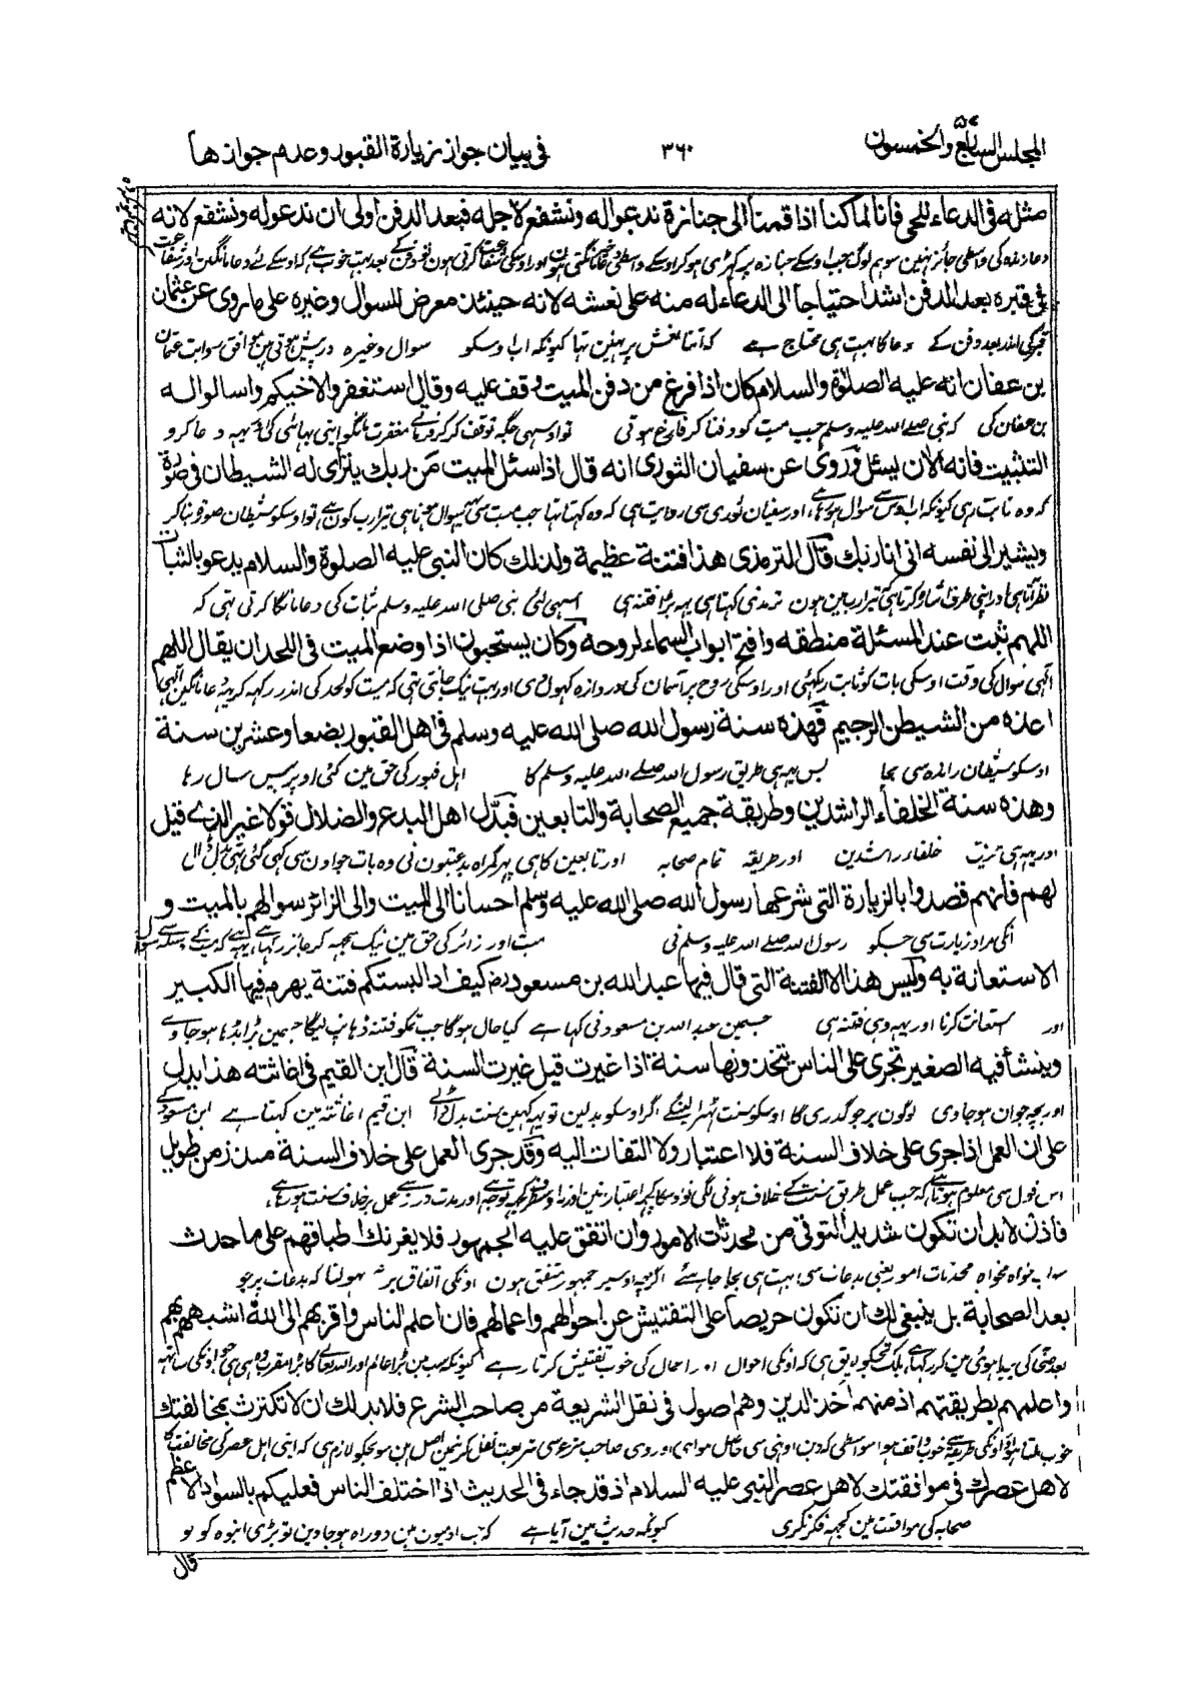 المجلس السابع والخمسون ٥٧
٣٦٠
فى بيان جواز زيارة القبور وعدم جوازها
مثله فى الدعاء للحى فانا لما كنا اذا قمنا الى جنازة ندعو اله ونشفع لاجله فبعد الدفن اولى ان ندعو له ونشفع لانه
فى قبره بعد الدفن اشد احتياجا الى الدعاء له منه على نعشه لانه حينئذ معرض للسوال وغيره على ما روى عن عثمان
قبر کی اندر بعد دفن کے دعا کا بہت ہی محتاج ہے کہ اتنا نعش پر نہین تہا کیونکہ اب اوسکو سوال وغیرہ درپیش
بن عفان انه عليه الصلوة والسلام كان اذا فرغ من دفن الميت وقف عليه وقال استغفروا لاخيكم واسالوا له
بن عفان کی کہ نبی صلے اللہ علیہ وسلم جب میت کو دفنا کر فارغ ہوتی تو اوسہی جگہ توقف کر کر فرماتے مغفرت مانگو اپنی بہائی کی دعا کرو
التثبيت فانه الان يسئل وروى عن سفيان الثورى انه قال اذا سئل الميت من ربك يتزأى له الشيطان فى صورة
کہ وہ ثابت رہی کیونکہ اب اوس سے سوال ہوتا ہے اور سفیان ثوری سی روایت ہی کہ وہ کہتا تہا جب میت سی یہ سوال ہوتا ہی تیرا رب کون ہے تو اوسکو شیطان
ويشير الى نفسه انى انا ربك قال الترمذى هذا فتنة عظيمة ولذلك كان النبى عليه الصلوة والسلام يدعو بالثبات
نظر آتا ہی اور اپنی طرف اشارہ کرتا ہی کہ تیرا رب مین ہون ترمذی کہتا ہی یہہ بڑا فتنہ ہی اسہی لئی نبی صلی اللہ علیہ وسلم ثبات کی دعا مانگا کرتی تہی کہ
اللهم ثبت عند المسئلة منطقه وافتح ابواب السماء لروحه وكان يستحبون اذا وضع الميت فى اللحد ان يقال اللهم
الہی سوال کی وقت اوسکی بات کو ثابت رکہئی اور اوسکی روح پر آسمان کی دروازہ کہول دی اور بہت نیک جانتی تہی کہ میت کو لحد کی اندر رکہہ کر یہہ دعا مانگین الہی
اعذه من الشيطن الرجيم فهذه سنة رسول الله صلى الله عليه وسلم فى اهل القبور بضعا وعشرين سنة
اوسکو شیطان راندہ سی بچا بس یہہ ہی طریق رسول اللہ صلے اللہ علیہ وسلم کا اہل قبور کی حق مین کئی اوپر بیس سال رہا
وهذه سنة الخلفاء الراشدين وطريقة جميع الصحابة والتابعين فبدل اهل البدع والضلال قولا غير الذى قيل
اور یہہ ہی خلفاء راشدین اور طریقہ تمام صحابہ اور تابعین کا ہی پہر گمراہ بدعتیون نی وہ بات جو اون سی کہی گئی تہی بدل ڈالی
لهم فانهم قصدوا بالزيارة التى شرعها رسول الله صلى الله عليه وسلم احسانا الى الميت والى الزائر سوالهم بالميت و
انکی مراد زیارت سی جسکو رسول اللہ صلے اللہ علیہ وسلم نی میت اور زائر کی حق مین نیک سمجہہ کر جائز رکہا ہے
الاستعانة به وليس هذا الا الفتنة التى قال فيها عبد الله بن مسعود رض كيف اذا البستكم فتنة يهرم فيها الكبير
اور استعانت کرنا اور یہہ وہی فتنہ ہی جسمین عبد اللہ بن مسعود نی کہا ہے کیا حال ہو گا جب تمکو فتنہ ڈہانپ لیگا جسمین بڑا بڈہا ہو جاوے
وينشأ فيه الصغير تجرى على الناس يتخذونها سنة اذا غيرت قيل غيرت السنة قال ابن القيم فى اغاثته هذا يدل
اور بچہ جوان ہو جاوی لوگون پر جو گذری گا اوسکو سنت ٹہرا لینگے اگر اوسکو بدلین تو یہہ کہین سنت بدل ڈالی ابن قیم اغاثتہ مین کہتا ہے ابن مسعود کے
على ان العمل اذا جرى على خلاف السنة فلا اعتبار ولا التفات اليه وقد جرى العمل على خلاف السنة منذ زمن طويل
اس قول سی معلوم ہوتا ہے کہ جب عمل طریق سنت کے خلاف ہونی لگی تو اوسکا کچہہ اعتبار نہین اور مدت دراز سے عمل برخلاف سنت ہو رہا ہے
فاذن لا بد ان تكون شديد التوقى من محدثات الامور وان اتفق عليه الجمهور فلا يغرنك اطباقهم على ما حدث
خواہ مخواہ محدثات امور یعنی بدعات سی بہت ہی بچا چاہئے اگرچہ اوسپر جمہور متفق ہون اونکی اتفاق پر نہ بہولنا کہ بدعات پر جو
بعد الصحابة بل ينبغى لك ان تكون حريصا على التفتيش عن احوالهم واعمالهم فان اعلم الناس واقربهم الى الله اشبههم بهم
واعلمهم بطريقتهم اذ منهم اخذ الدين وهم اصول فى نقل الشريعة من صاحب الشرع فلا بد لك ان لا تكترث بمخالفتك
لاهل عصرك فى موافقتك لاهل عصر النبى عليه السلام اذ قد جاء فى الحديث اذا اختلف الناس فعليكم بالسواد الاعظم
صحابہ کی موافقت مین کچہہ فکر نکری کیونکہ حدیث مین آیا ہے کہ جب ادمیون مین دو راہ ہو جاوین تو بڑی انبوہ کو لو
قال